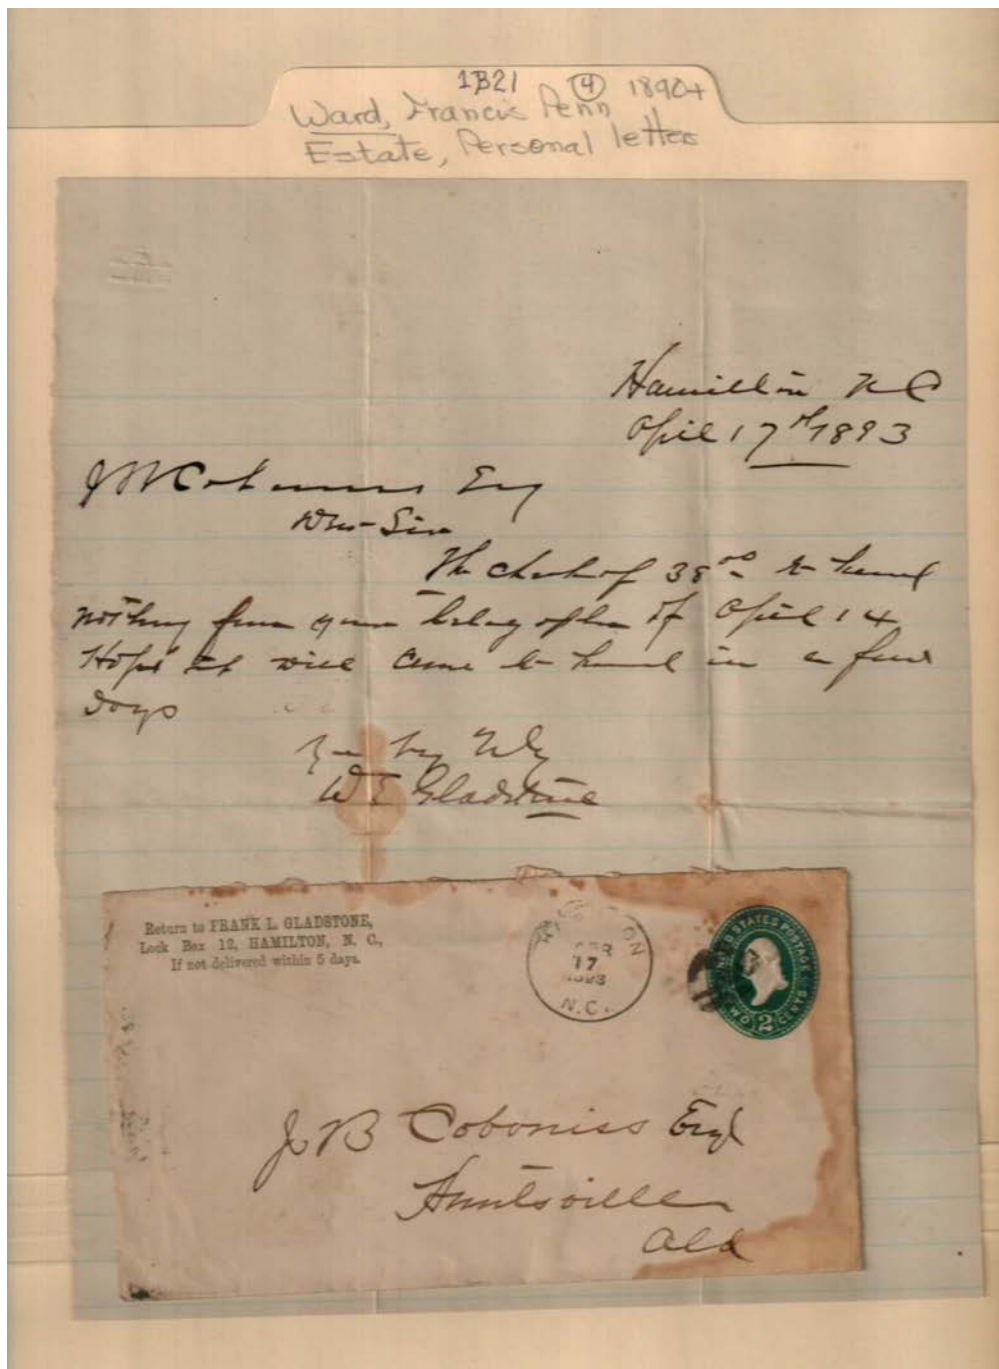 1B21 4 1890+
Ward, Francis Penn
Estate, Personal letters
Hamilton N C
April 17th 1893
Esq
Dear Sir
The check of 38 00 to hand
nothing from your of April 14
Hope it will come to hand in a few
Days
W E Gladstone
Return to FRANK L. GLADSTONE,
Lock Box 12, HAMILTON, N. C.,
If not delivered within 5 days.
HAMILTON
APR
17
1893
N.C.
UNITED STATES POSTAGE
TWO 2 CENTS
J B Coboniss Esq
Huntsville
Ala